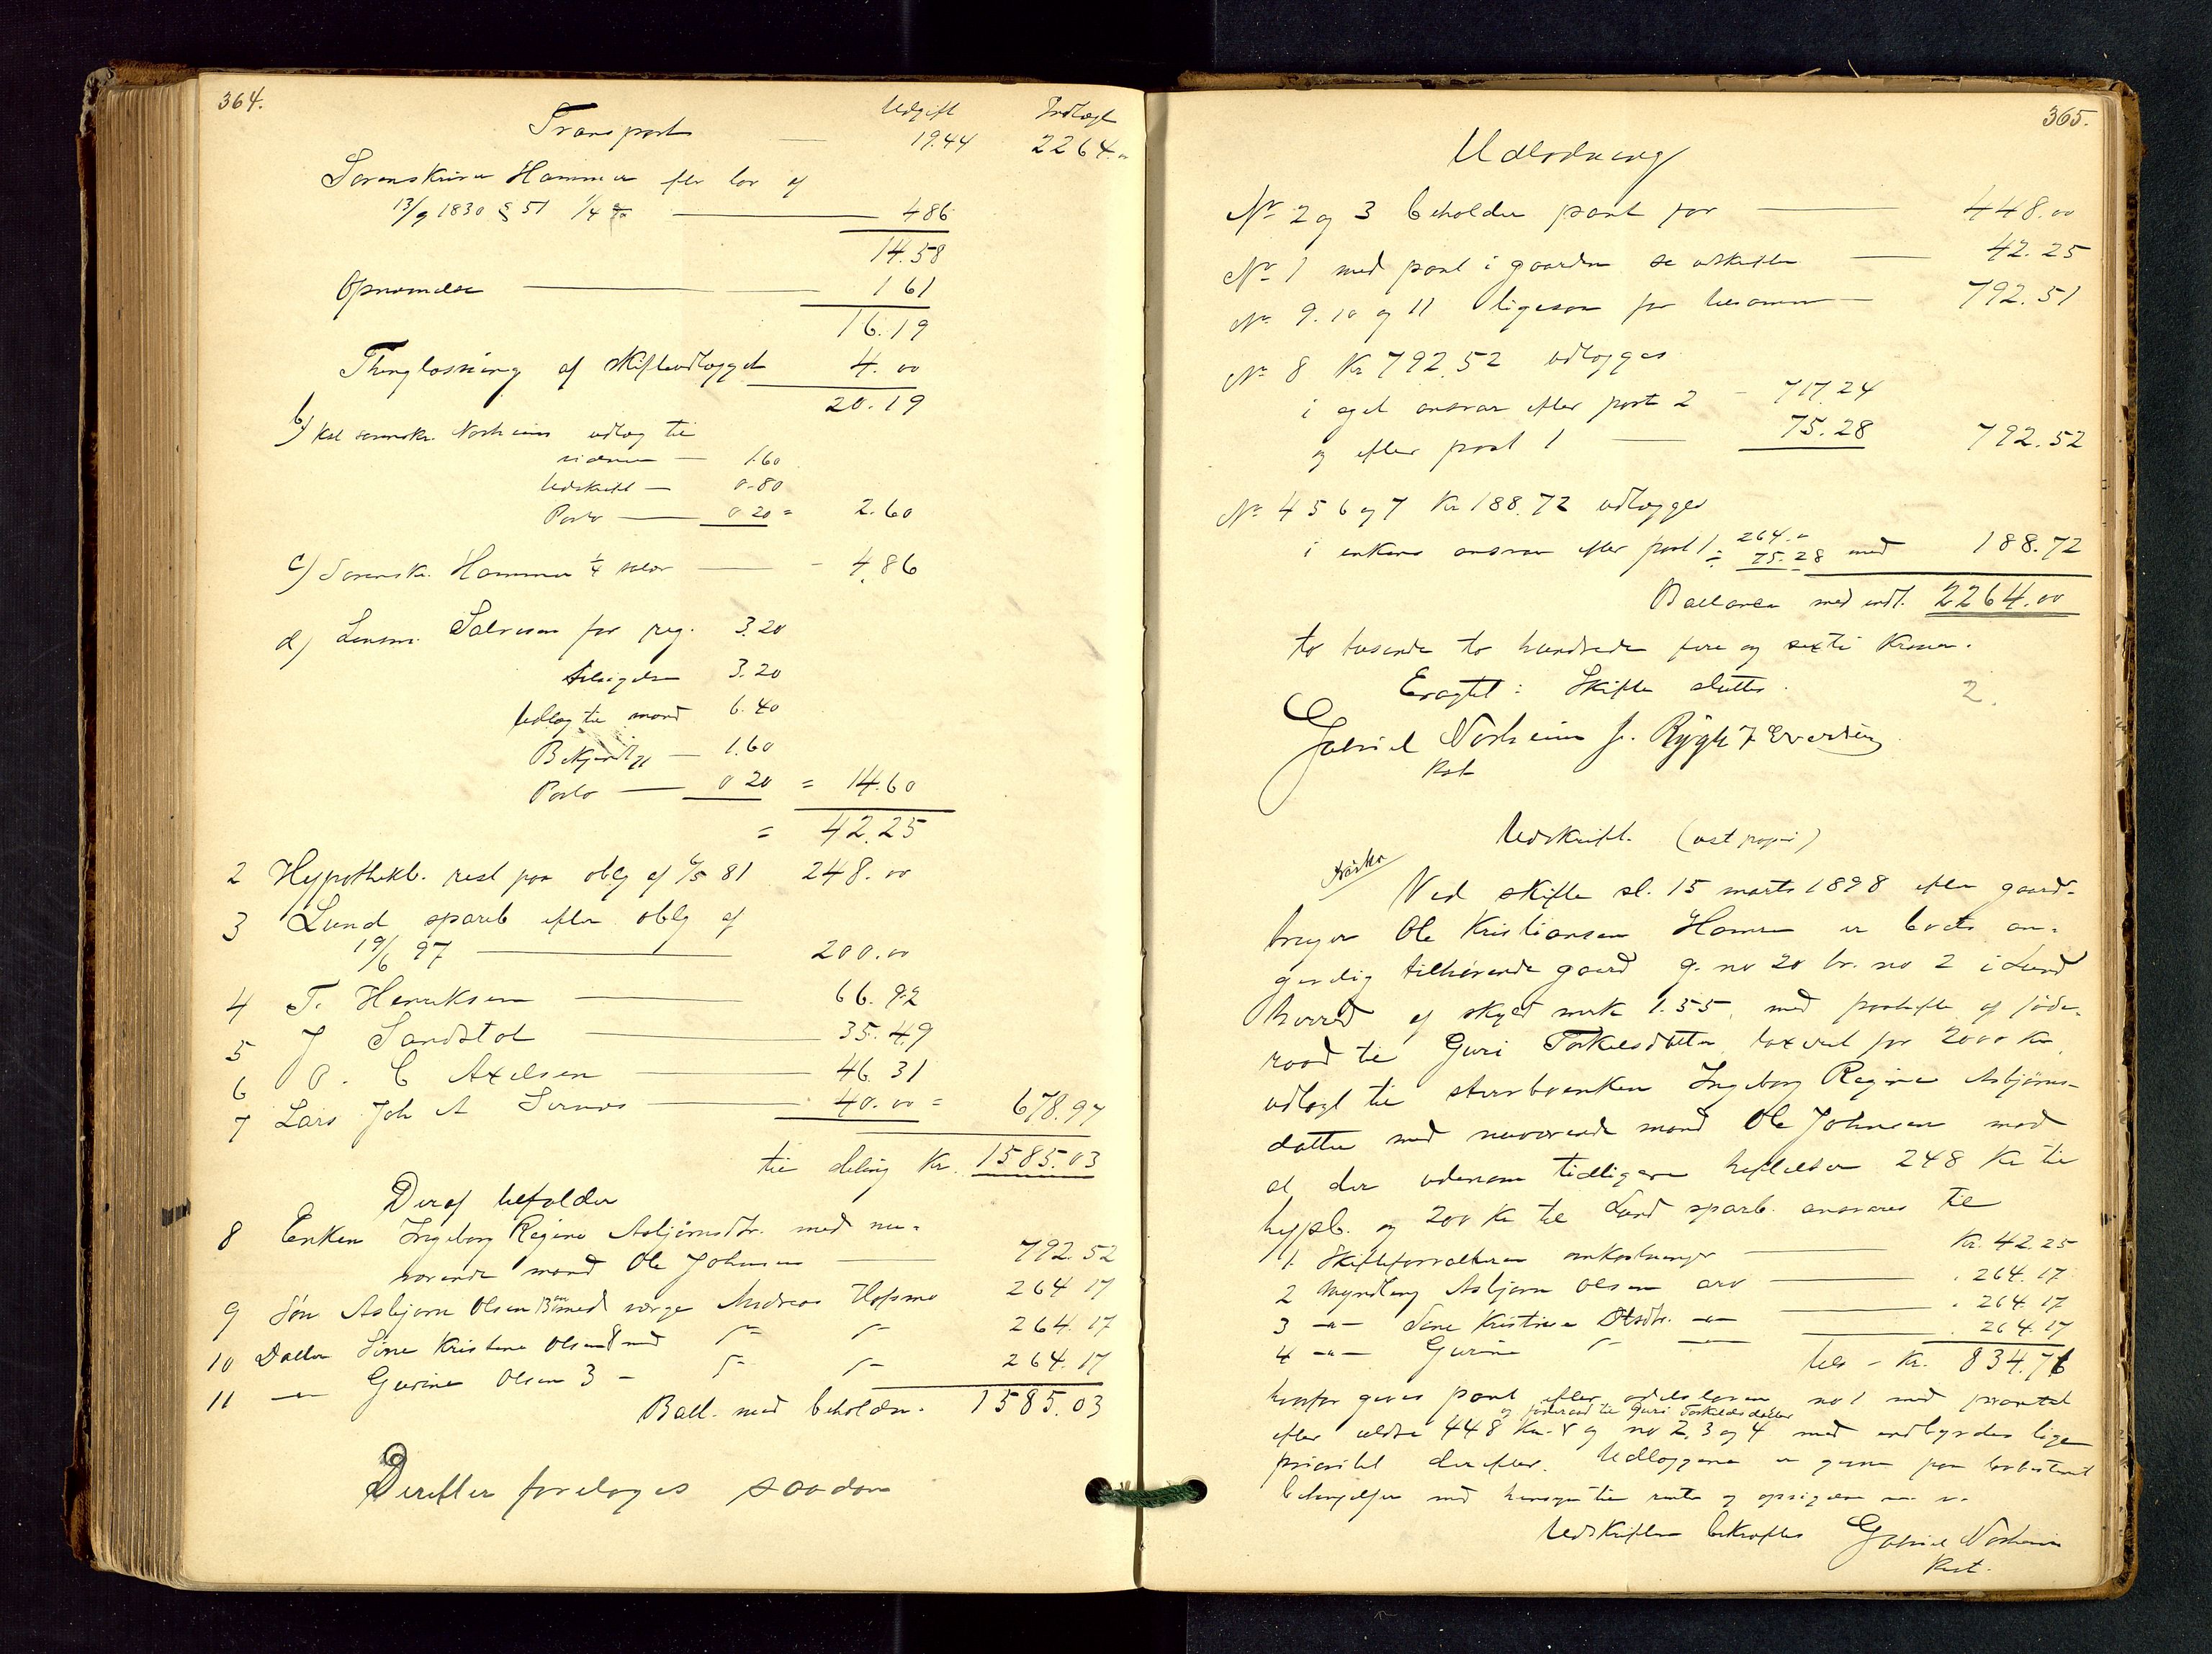 364.
Udgift Indtægt
Transport — 19.44 2264.„
Sorenskriver Hammer efter lov af
13/9 1830 § 51 1/4 % — 4 86
14.58
Opnævnelse — 1 61
16.19
Thinglæsning af skifteudlægget 4.00
20.19
b) Kst sorenskr. Norheims udlæg til
vidner — 1.60
Udskrift — 0.80
Porto — 0 20 = 2.60
c) Sorenskr. Hammer 1/4 salær — 4.86
d) Lensm. Salvesen for reg. 3.20
6.40
3.20
Udlæg til mænd
Bekjendtg — 1.60
Porto — 0 20 = 14.60
= 42.25
2 Hypothekb. rest paa oblg af 6/5 81 248.00
3 Lund spareb efter oblg af
19/6 97 — 200.00
4 T. Henriksen — 66.92
5 J Sandstøl — 35.49
6 O. C Axelsen — 46.31
7 Lars Joh A — 40.00 = 678.97
til deling Kr. 1585.03
Deraf tilfalder
8 Enken Ingeborg Regine Asbjørnsdtr. med nu-
værende mand Ole Johnsen — 792.52
9 Søn Asbjørn Olsen 13 aar med værge Andreas Hofsmo 264 17
10 Datter Sine Kristine Olsen 8 med „ „ 264.17
11 —„— Gurine Olsen 3 — „ „ 264.17
Ball. med beholdn. 1585.03
Derefter foretoges saadan
365.
Udlodning
No 2 og 3 beholder pant for — 448.00
No 1 med pant i gaarden se udskriften — 42.25
No 9. 10 og 11 ligesaa for tilsammen — 792.51
No 8 Kr 792.52 udlægges
i eget ansvar efter post 2 — 717.24
og efter post 1 — 75.28 792.52
No 4 5 6 og 7 Kr 188.72 udlægges
i enkens ansvar efter post 1 264.„ ÷ 75.28 med 188.72
Ballance med indt. 2264.00
to tusende to hundrede fire og sexti Kroner.
Eragtet: Skiftet sluttes.
2.
Gabriel Norheim J. Rygh J Evertsen
Kst
Udskrift. (ust papir)
Ved skifte sl. 15 marts 1898 efter gaard-
bruger Ole Kristiansen Hamre er boets an-
givelig tilhørende gaard g. no 20 br. no 2 i Lund
herred af skyld mark 1.55, med paahefte af føde-
raad til Guri Torkelsdatter, taxeret for 2000 Kr,
udlagt til sterbboenken Ingeborg Regine Asbjørns-
datter med nuværende mand Ole Johnsen mod
at der udenom tidligere heftelser 248 Kr til
hypb. og 200 Kr til Lund spareb. ansvares til
1. Skifteforvalteren omkostninger — Kr. 42.25
2 Myndling Asbjørn Olsen arv — „ 264.17
3 —„— Sine Kristine Olsdtr. —„— — „ 264.17
4 —„— Gurine „ —„— — 264.17
tils — Kr. 834.76
hvorfor gives pant efter odelsloven no 1 med prioritet
og føderaad til Guri Torkelsdatter
efter ældre 448 Kr. og no 2, 3 og 4 med indbyrdes lige
prioritet derefter. Udlæggene er givne paa lovbestemt
betingelser med hensyn til rente og opsigelse m. v.
Udskriften bekræftes Gabriel Norheim
Kst.